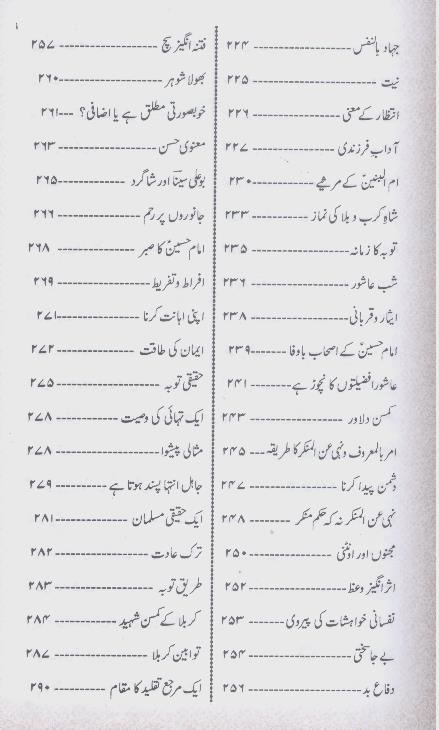 جہاد بالنفس ---------- ۲۲۴
نیت ---------- ۲۲۵
انتظار کے معنی ---------- ۲۲۶
آداب فرزندی ---------- ۲۲۷
ام البنینؑ کے مرثیے ---------- ۲۳۰
شاہ کرب و بلا کی نماز ---------- ۲۳۳
توبہ کا زمانہ ---------- ۲۳۵
شب عاشور ---------- ۲۳۶
ایثار و قربانی ---------- ۲۳۸
امام حسینؑ کے اصحاب باوفا ---------- ۲۳۹
عاشورا فضیلتوں کا نچوڑ ہے ---------- ۲۴۱
کمسن دلاور ---------- ۲۴۳
امر بالمعروف و نہی عن المنکر کا طریقہ ---- ۲۴۵
دشمن پیدا کرنا ---------- ۲۴۷
نہی عن المنکر نہ کہ حکم منکر ---------- ۲۴۸
مجنوں اور اونٹنی ---------- ۲۵۰
اثر انگیز وعظ ---------- ۲۵۲
نفسانی خواہشات کی پیروی ---------- ۲۵۳
بے جا سختی ---------- ۲۵۴
دفاع بد ---------- ۲۵۶
فتنہ انگیز سچ ---------- ۲۵۷
بھولا شوہر ---------- ۲۶۰
خوبصورتی مطلق ہے یا اضافی؟ ---- ۲۶۱
معنوی حسن ---------- ۲۶۳
بو علی سینا اور شاگرد ---------- ۲۶۵
جانوروں پر رحم ---------- ۲۶۶
امام حسینؑ کا صبر ---------- ۲۶۸
افراط و تفریط ---------- ۲۶۹
اپنی اہانت کرنا ---------- ۲۷۱
ایمان کی طاقت ---------- ۲۷۲
حقیقی توبہ ---------- ۲۷۵
ایک تہائی کی وصیت ---------- ۲۷۸
مثالی پیشوا ---------- ۲۷۸
جاہل انتہا پسند ہوتا ہے ---------- ۲۷۹
ایک حقیقی مسلمان ---------- ۲۸۱
ترک عادت ---------- ۲۸۲
طریق توبہ ---------- ۲۸۳
کربلا کے کمسن شہید ---------- ۲۸۴
توابین کربلا ---------- ۲۸۷
ایک مرجع تقلید کا مقام ---------- ۲۹۰